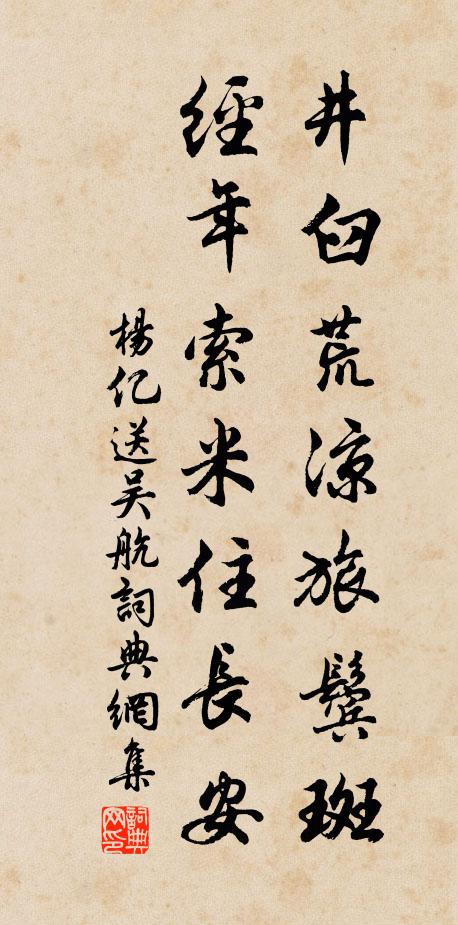 井臼荒涼旅鬢斑
經年索米住長安
楊亿送吴航詞典網集
詞典網印